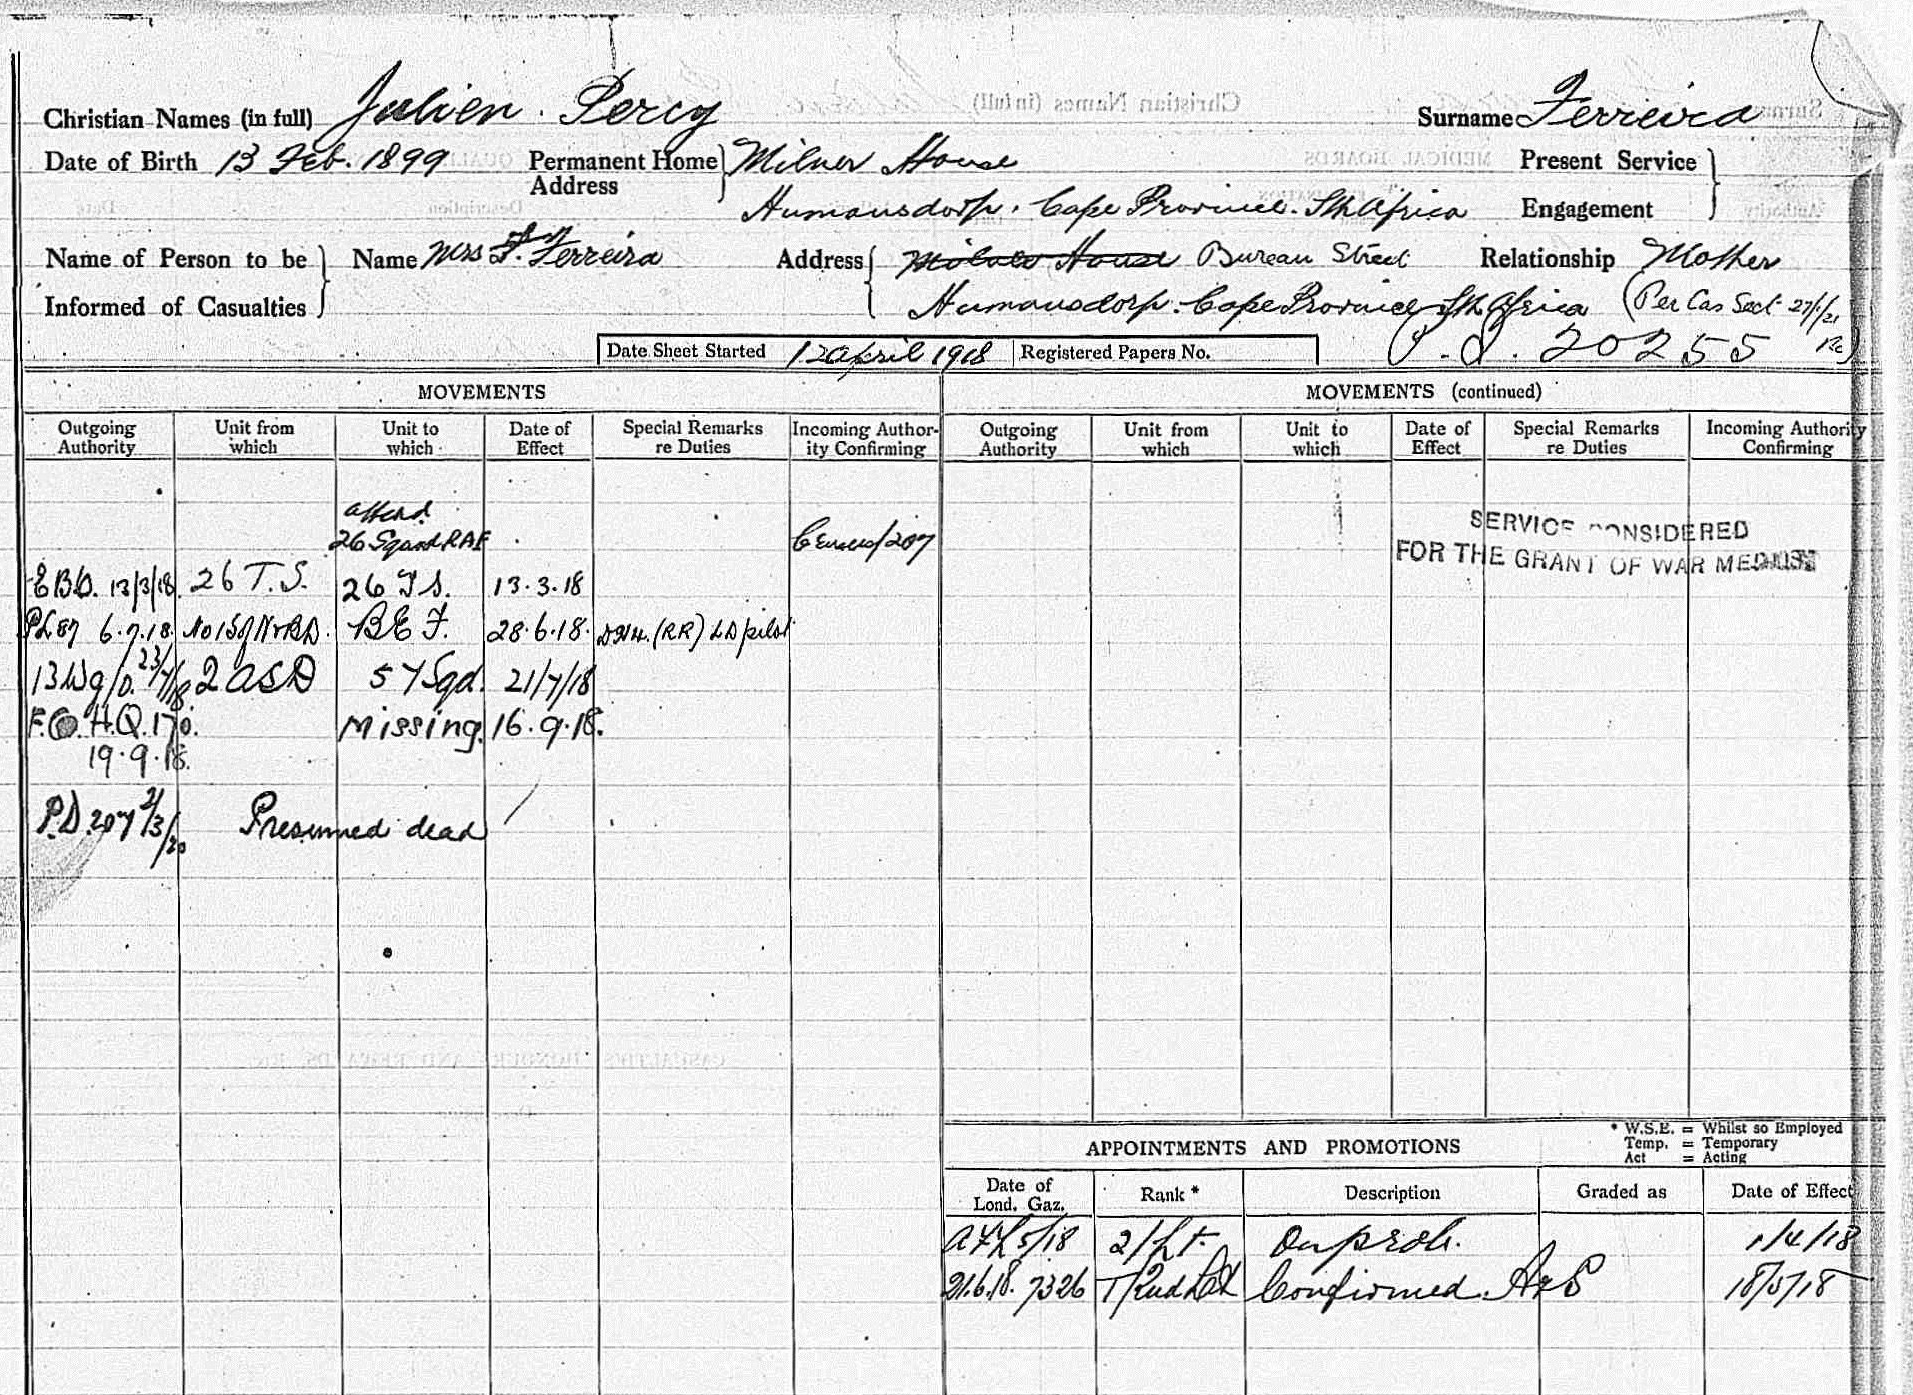 Christian Names (in full) Julien Percy Surname Ferreira
Date of Birth 13 Feb. 1899 Permanent Home Address Milner House Present Service
Humansdorp. Cape Province. Sth Africa Engagement
Name of Person to be Name Mrs F. Ferreira Address Milner House Bureau Street Relationship Mother
Informed of Casualties Humansdorp. Cape Province Sth Africa (Per Cas Sect 27/1/21
Date Sheet Started 12 April 1918 Registered Papers No. P.I. 20255
MOVEMENTS MOVEMENTS (continued)
Outgoing Authority Unit from which Unit to which Date of Effect Special Remarks re Duties Incoming Authority Confirming Outgoing Authority Unit from which Unit to which Date of Effect Special Remarks re Duties Incoming Authority Confirming
attend
26 Squad RAF /207
SERVICE CONSIDERED
FOR THE GRANT OF WAR
13/3/18. 26 T.S. 26 T.S. 13.3.18
6.7.18. BEF. 28.6.18. DH4. (RR) LD pilot
13 Wg/O. 23/7/18 2 ASD 57 Sqd. 21/7/18
H.Q. 170. Missing. 16.9.18.
19.9.18.
P.D. 207 Presumed dead
APPOINTMENTS AND PROMOTIONS
* W.S.E. = Whilst so Employed
Temp. = Temporary
Act = Acting
Date of Lond. Gaz. Rank * Description Graded as Date of Effect
5/18 2/Lt. On prob. 1/4/18
21.6.18. 7326 Confirmed. 18/5/18